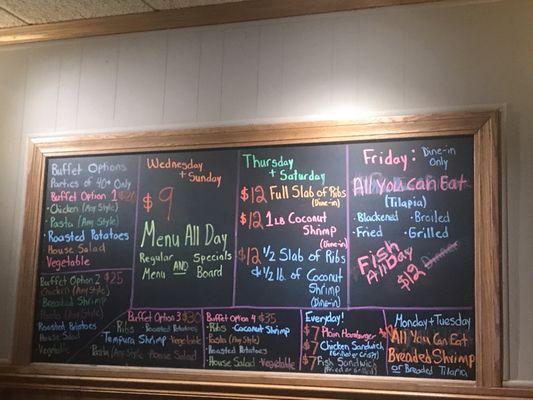 Buffet Options
Parties of 40+ Only
Buffet Option 1
• Chicken (Any Style)
• Pasta (Any Style)
• Roasted Potatoes
House Salad
Vegetable
Buffet Option 2 $25
Chicken (Any Style)
Breaded Shrimp
Pasta (Any Style)
Roasted Potatoes
House Salad
Vegetable
Wednesday
+ Sunday
$9
Menu All Day
Regular Specials
Menu AND Board
Thursday
+ Saturday
$12 Full Slab of Ribs
(Dine-in)
$12 1 LB Coconut
Shrimp
(Dine-in)
$12 1/2 Slab of Ribs
& 1/2 lb. of Coconut
Shrimp
(Dine-in)
Friday: Dine-in
Only
All You Can Eat
(Tilapia)
• Blackened • Broiled
• Fried • Grilled
Fish
All Day
$12 Dinner
Buffet Option 3 $30
Ribs • Roasted Potatoes
Tempura Shrimp Vegetable
Pasta (Any Style) House Salad
Buffet Option 4 $35
• Ribs • Coconut Shrimp
• Pasta (Any Style)
• Roasted Potatoes
• House Salad • Vegetable
Everyday!
$7 Plain Hamburger
$7 Chicken Sandwich
(Grilled or Crispy)
$7 Fish Sandwich
(Fried or Grilled)
Monday + Tuesday
All You Can Eat
Breaded Shrimp
or Breaded Tilapia